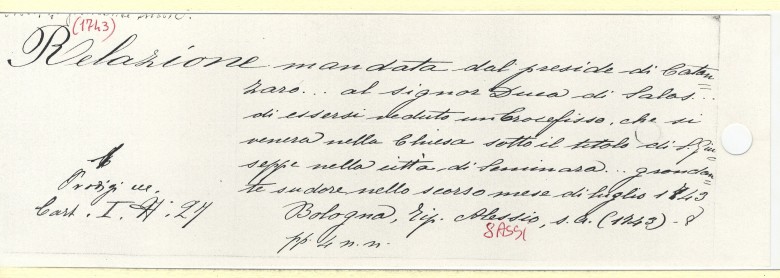 (1743)
Relazione mandata dal preside di Catan=
zaro... al signor Duca di Salas...
di essersi veduto un Crocefisso, che si
venera nella Chiesa sotto il titolo di S. Giu=
seppe nella città di Seminara... grondan=
te sudore nello scorso mese di luglio 1743
Bologna, Tip. Alessio, s.a. (1743) - 8
SASSI
pp. 4 n. n.
Prodigi ec.
Cart. I. H: 27